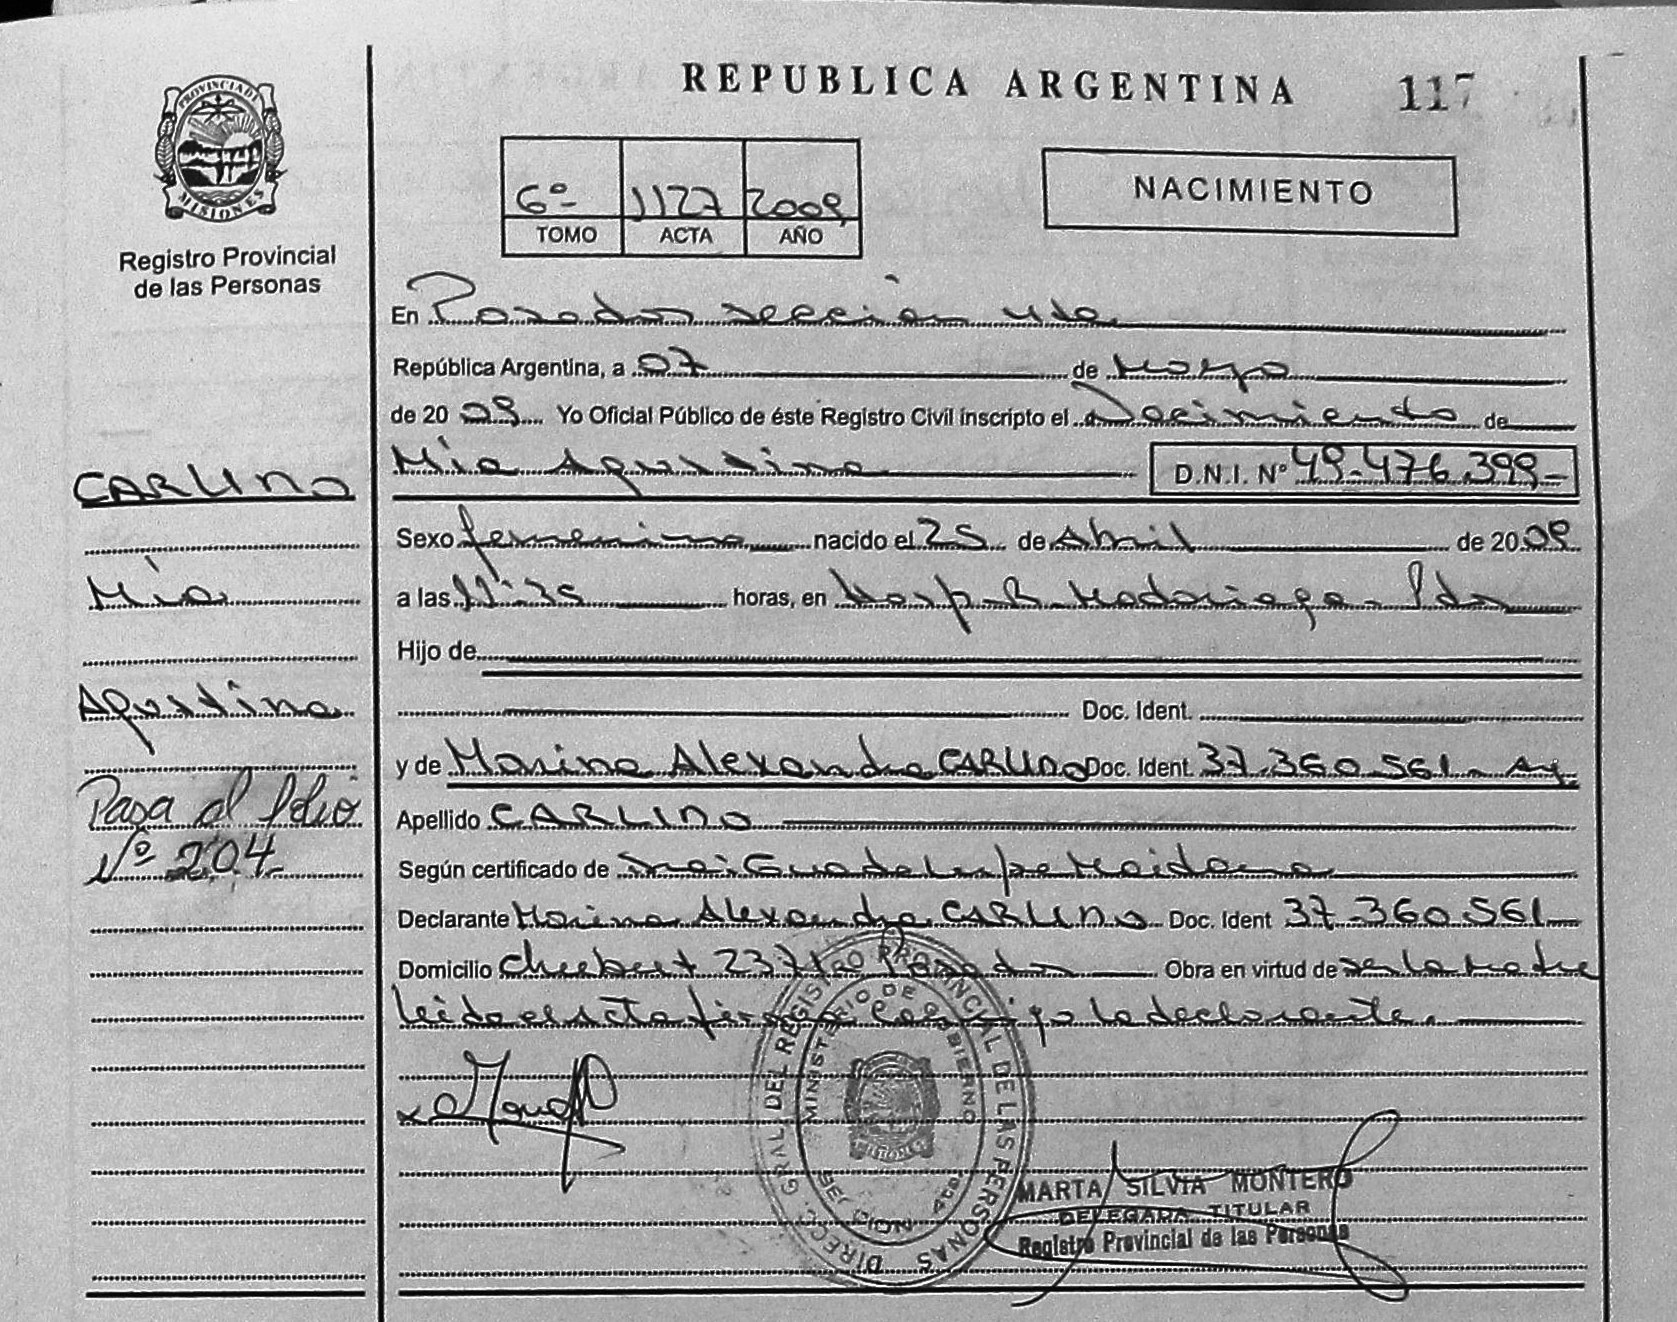 REPUBLICA ARGENTINA 117
PROVINCIA DE MISIONES
Registro Provincial
de las Personas
6º 1127 2009
TOMO ACTA AÑO
NACIMIENTO
En Posadas sección 4ta.
República Argentina, a 07 de Mayo
de 20 09 Yo Oficial Público de éste Registro Civil inscripto el Nacimiento de
Mía Agustina D.N.I. Nº 49.476.399-
Sexo femenino nacido el 25 de Abril de 2009
a las 11:35 horas, en Hosp. R. Madariaga - Pdas
Hijo de
Doc. Ident.
y de Marina Alexandra CARLINO Doc. Ident. 37.360.561 -
Apellido CARLINO
Según certificado de Guadalupe Maidana
Declarante Marina Alexandra CARLINO Doc. Ident 37.360.561
Domicilio Posadas Obra en virtud de ser la madre
leida el acta firma conmigo la declarante.
CARLINO
Mía
Agustina
Pasa al folio
Nº 204-
DIRECC. GRAL. DEL REGISTRO PROVINCIAL DE LAS PERSONAS
MINISTERIO DE GOBIERNO
MARTA SILVIA MONTERO
DELEGADA TITULAR
Registro Provincial de las Personas